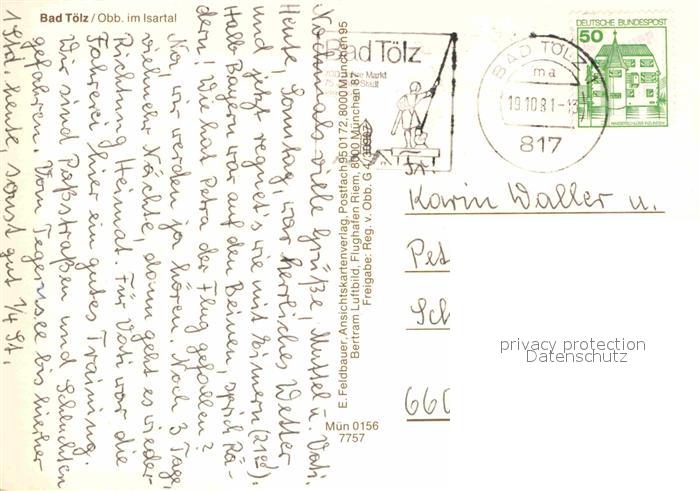 Bad Tölz / Obb. im Isartal
Nochmals viele Grüße! Muttel u. Vati.
Heute, Sonntag, war herrliches Wetter
und jetzt regnet's wie mit Eimern (21 Uhr).
Halb Bayern war auf den Beinen, sprich Rä-
dern! Wie hat Petra der Flug gefallen?
Na, wir werden ja hören. Noch 3 Tage,
vielmehr Nächte, dann geht es wieder
Richtung Heimat. Für Vati war die
Fahrerei hier ein gutes Training.
Wir sind Paßstraßen und Schluchten
gefahren. Vom Tegernsee bis hierher
1 Std. heute, sonst gut 1/4 St.
E. Feldbauer, Ansichtskartenverlag, Postfach 95 01 72, 8000 München 95
Bertram Luftbild, Flughafen Riem, 8000 München 87
Freigabe: Reg. v. Obb. G
Mün 0156
7757
Bad Tölz
Markt
Stadt
BAD TÖLZ
ma
19.10.81
817
DEUTSCHE BUNDESPOST
50
WASSERSCHLOSS INZLINGEN
Fr.
Karin Waller u.
Pet
Sch
660
privacy protection
Datenschutz